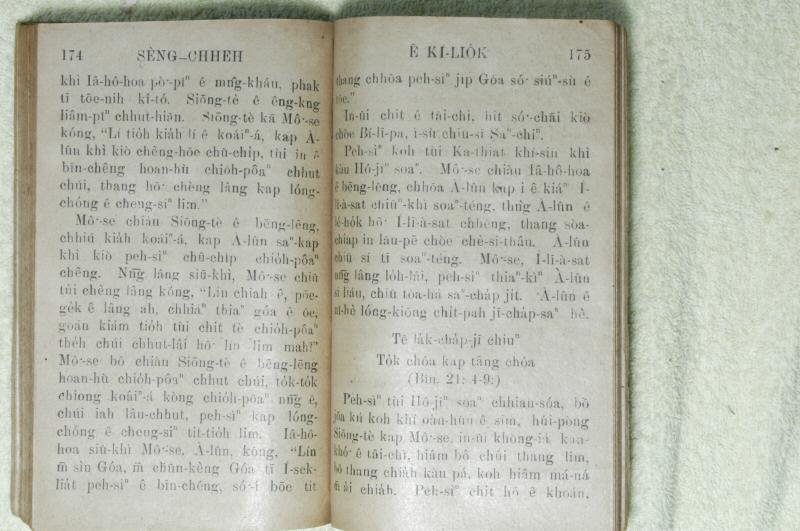 174 SÈNG-CHHEH
khì Iâ-hô-hoa pò͘-pîⁿ ê mn̂g-kháu, phak
tī tōe-nih kî-tó. Siōng-tè ê êng-kng
liâm-piⁿ chhut-hiān. Siōng-tè kā Mô͘-se
kóng, “Lí tio̍h kia̍h lí ê koáiⁿ-á, kap À-
lûn khì kiò chêng-hōe chū-chi̍p, tùi in ê
bīn-chêng hoan-hù chio̍h-pôaⁿ chhut
chúi, thang hō͘ chèng lâng kap lóng-
chóng ê cheng-siⁿ lim.”
Mô͘-se chiàu Siōng-tè ê bēng-lēng,
chhiú kia̍h koáiⁿ-á, kap À-lûn saⁿ-kap
khì kiò peh-sìⁿ chū-chi̍p chio̍h-pôaⁿ
chêng. Nn̄g lâng siū-khì, Mô͘-se chiū
tùi chèng lâng kóng, “Lín chiah ê, pōe-
ge̍k ê lâng ah, chhiáⁿ thiaⁿ góa ê ōe,
goán kiám tio̍h tùi chit tè chio̍h-pôaⁿ
the̍h chúi chhut-lâi hō͘ lín lim mah?”
Mô͘-se bô chiàu Siōng-tè ê bēng-lēng
hoan-hù chio̍h-pôaⁿ chhut chúi, to̍k-to̍k
chiong koáiⁿ-á kòng chio̍h-pôaⁿ nn̄g ē,
chúi iah lâu-chhut, peh-sìⁿ kap lóng-
chóng ê cheng-siⁿ tit-tio̍h lim. Iâ-hô-
hoa siù-khì Mô͘-se, À-lûn, kóng, “Lín
m̄ sìn Góa, m̄ chun-kèng Góa tī Í-sek-
lia̍t peh-sìⁿ ê bīn-chêng, só͘-í bōe tit
Ê KÌ-LIÓK 175
thang chhōa peh-sìⁿ ji̍p Góa só͘ siúⁿ-sù ê
tōe.”
In-ūi chit ê tāi-chì, hit só͘-chāi kiò
chòe Bí-lī-pa, ì-sù chiū-sī Saⁿ-chìⁿ.
Peh-sìⁿ koh tùi Ka-thiat khí-sin khì
kàu Hô-jíⁿ soaⁿ. Mô͘-se chiàu Iâ-hô-hoa
ê bēng-lēng, chhōa À-lûn kap i ê kiáⁿ Í-
lī-à-sat chiūⁿ-khì soaⁿ-téng, thǹg À-lûn ê
lé-ho̍k hō͘ Í-lī-à-sat chhēng, thang sòa-
chiap in lāu-pē chòe chè-si-thâu. À-lûn
chiū sí tī soaⁿ-téng. Mô͘-se, Í-lī-à-sat
nn̄g lâng lo̍h-lâi, peh-sìⁿ thiaⁿ-kìⁿ À-lûn
sí liáu, chiū tòa-hà saⁿ-cha̍p ji̍t. À-lûn ê
nî-hè lóng-kiōng chi̍t-pah jī-cha̍p-saⁿ hè.
Tē la̍k-cha̍p-jī chiuⁿ
To̍k chôa kap tâng chôa
(Bîn. 21: 4-9:)
Peh-sìⁿ tùi Hô-jíⁿ soaⁿ chhian-sóa, bô
jōa kú koh khí oàn-hūn ê sim, húi-pòng
Siōng-tè kap Mô͘-se, in-ūi khòng-iá kan-
khó͘ ê tāi-chì, hiâm bô chúi thang lim,
bô thang chia̍h kàu pá, koh hiâm má-ná
m̄ ài chia̍h. Peh-sìⁿ chit hō ê khoán,